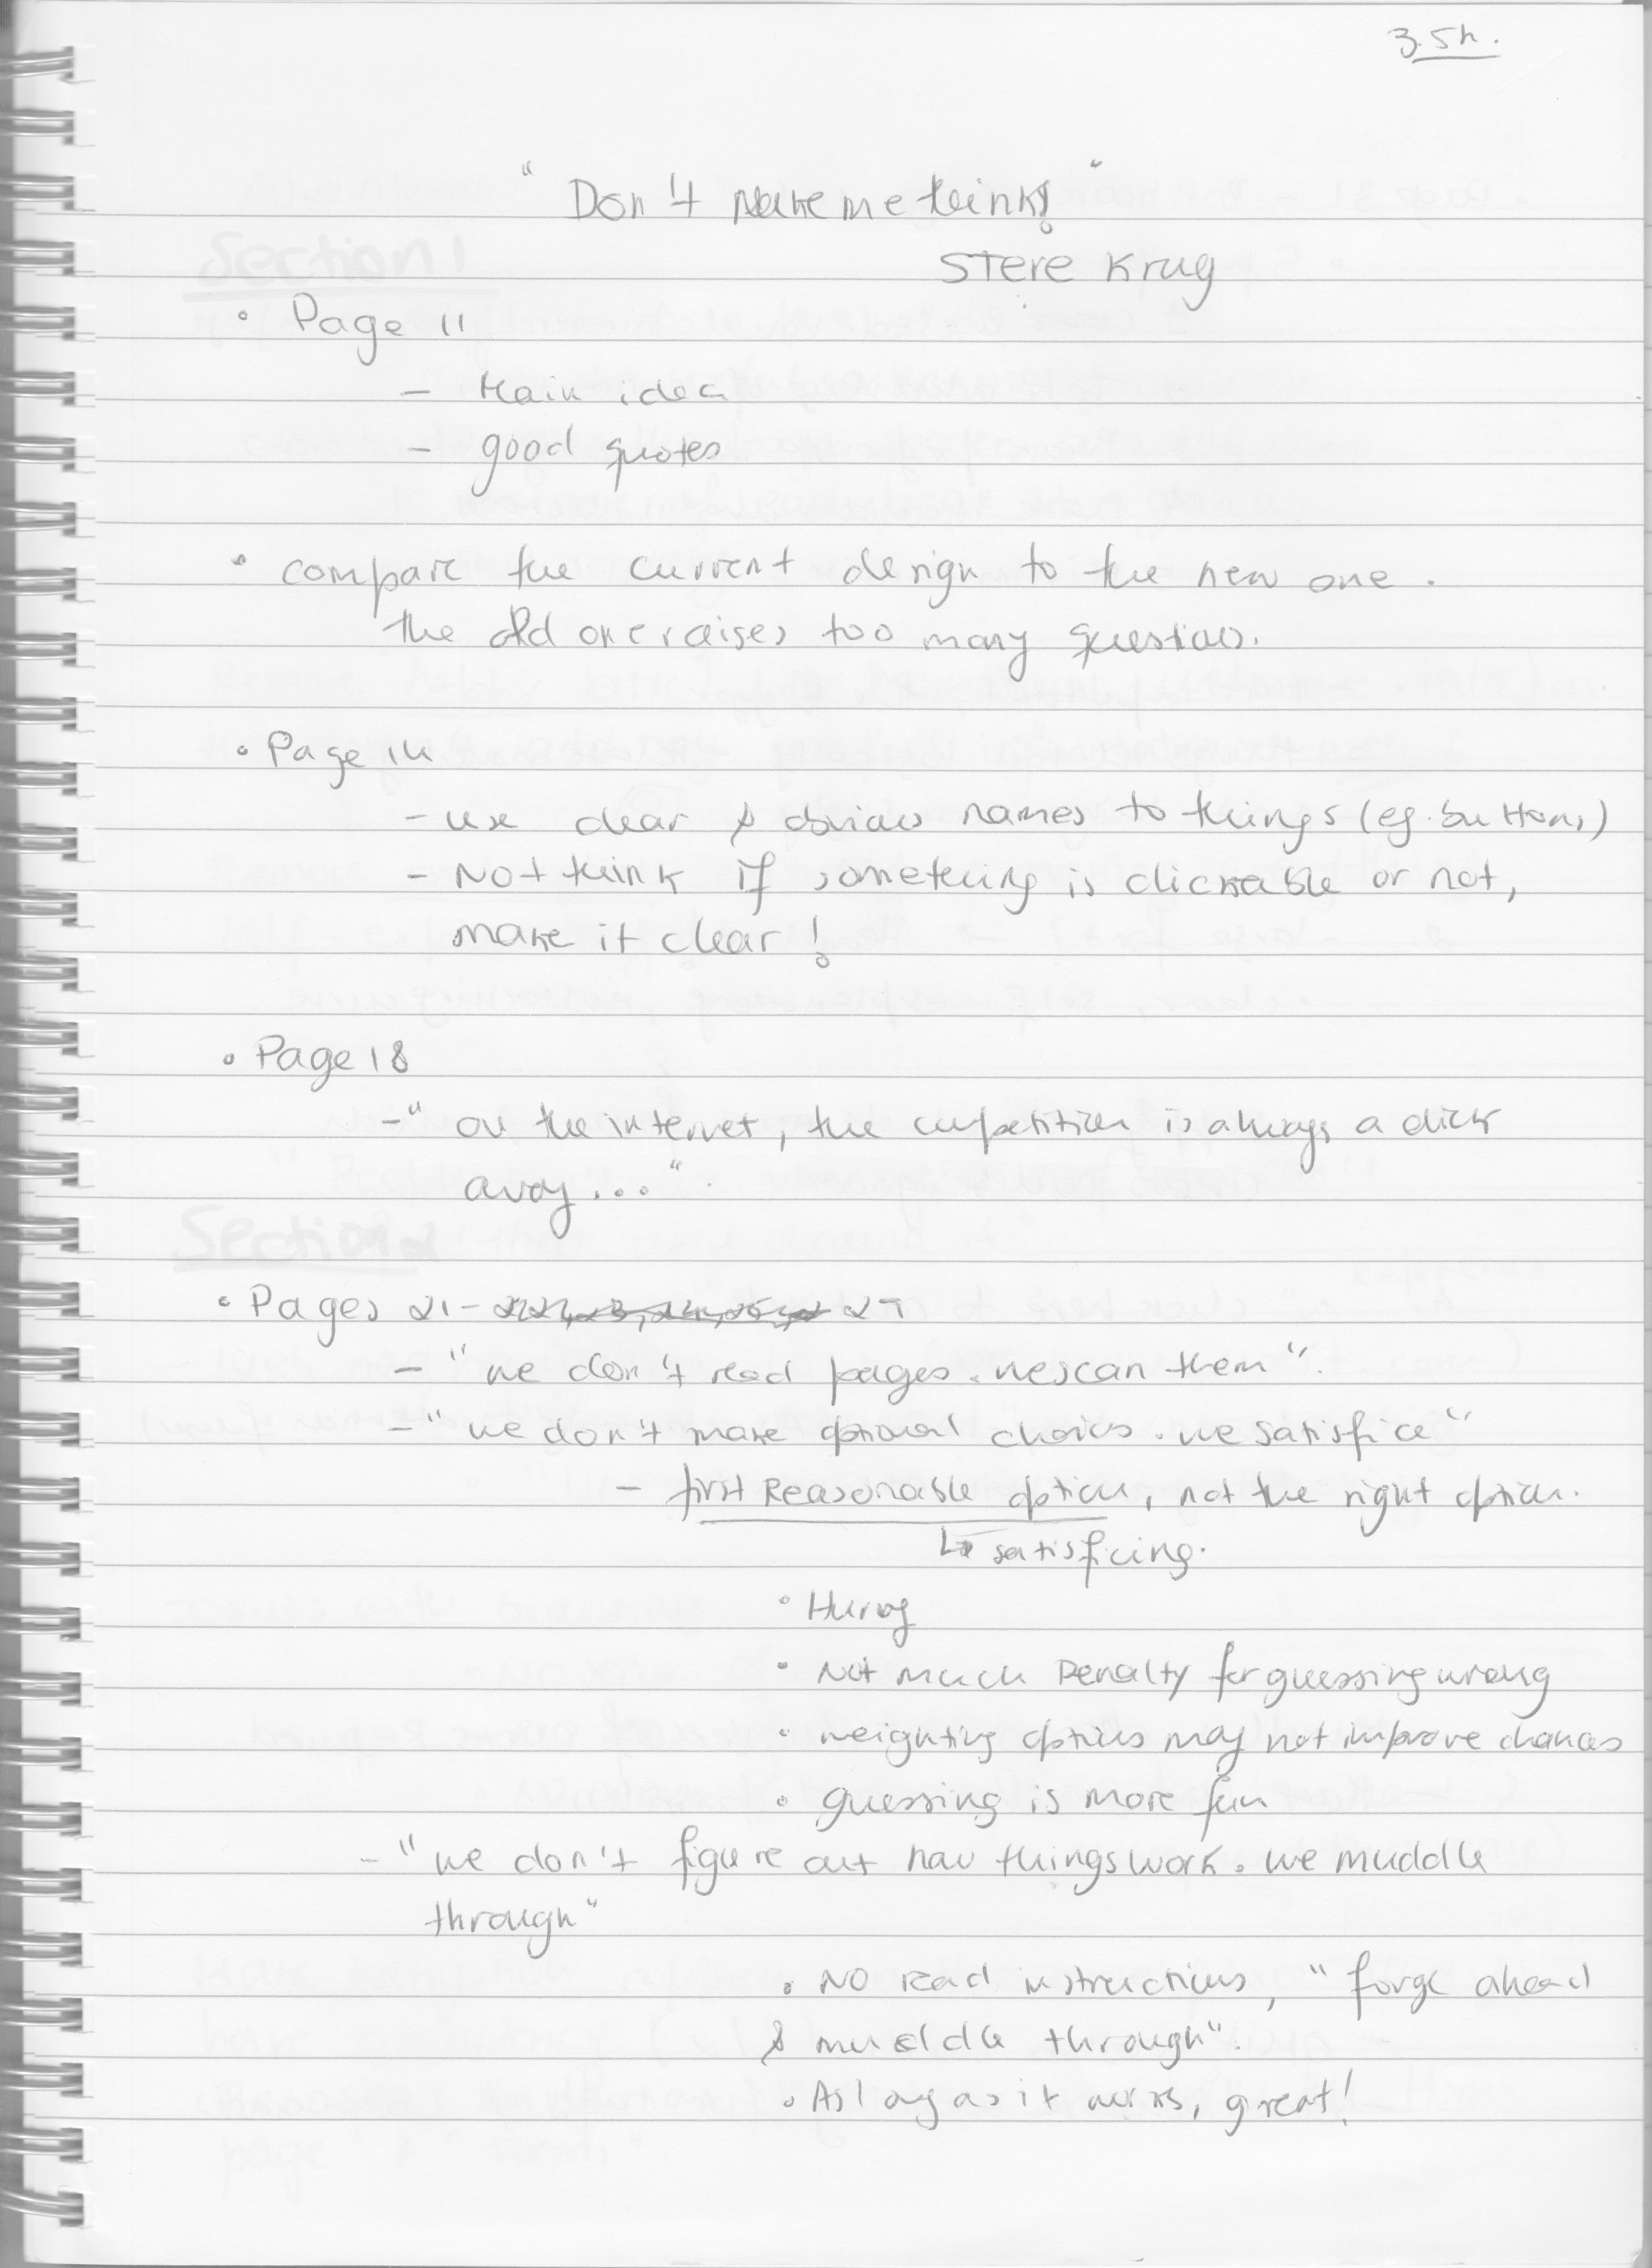 3.5h.
"Don't make me think!"
Steve Krug
• Page 11
- Main idea
- good quotes
• compare the current design to the new one.
the old one raises too many questions.
• Page 14
- use clear & obvious names to things (eg. buttons)
- Not think if something is clickable or not,
make it clear!
• Page 18
- "on the internet, the competition is always a click
away..."
Section 2
• Pages 21 - 27
- "we don't read pages. we scan them".
- "we don't make optimal choices. we satisfice"
- first Reasonable option, not the right option.
↳ satisficing.
• Hurry
• Not much Penalty for guessing wrong
• weighting options may not improve chances
• guessing is more fun
- "we don't figure out how things work. we muddle
through"
• NO read instructions, "forge ahead
& muddle through".
• As long as it works, great!